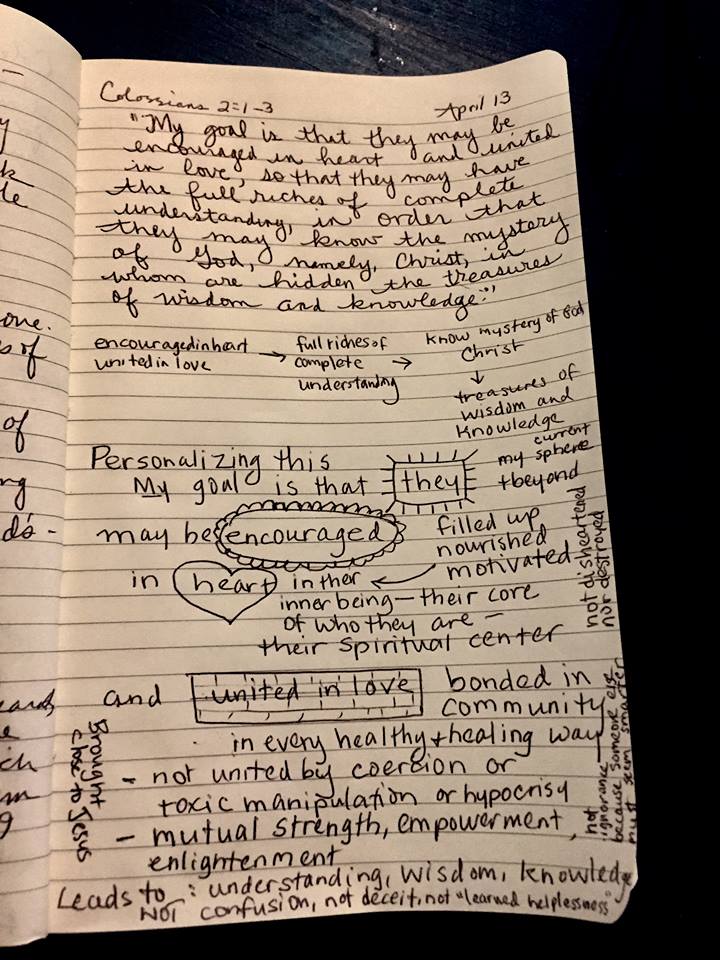 one.
s of
of
ng
ds -
ch
m
g
Colossians 2:1-3 April 13
"My goal is that they may be
encouraged in heart and united
in love, so that they may have
the full riches of complete
understanding, in order that
they may know the mystery
of God, namely, Christ, in
whom are hidden the treasures
of wisdom and knowledge."
encouraged in heart
united in love
→ full riches of
complete →
understanding
know mystery of God
Christ
↓
treasures of
wisdom and
knowledge
Personalizing this
My goal is that they
current
my sphere
+ beyond
may be encouraged
filled up
nourished
motivated
not disheartened
nor destroyed
in heart in ther ←
inner being — their core
of who they are —
their spiritual center
and united in love
bonded in
community
in every healthy + healing way
not ignorance
because someone else
must seem smarter
Brought
close to Jesus
- not united by coercion or
toxic manipulation or hypocrisy
- mutual strength, empowerment,
enlightenment
Leads to : understanding, wisdom, knowledge
NOT confusion, not deceit, not "learned helplessness"